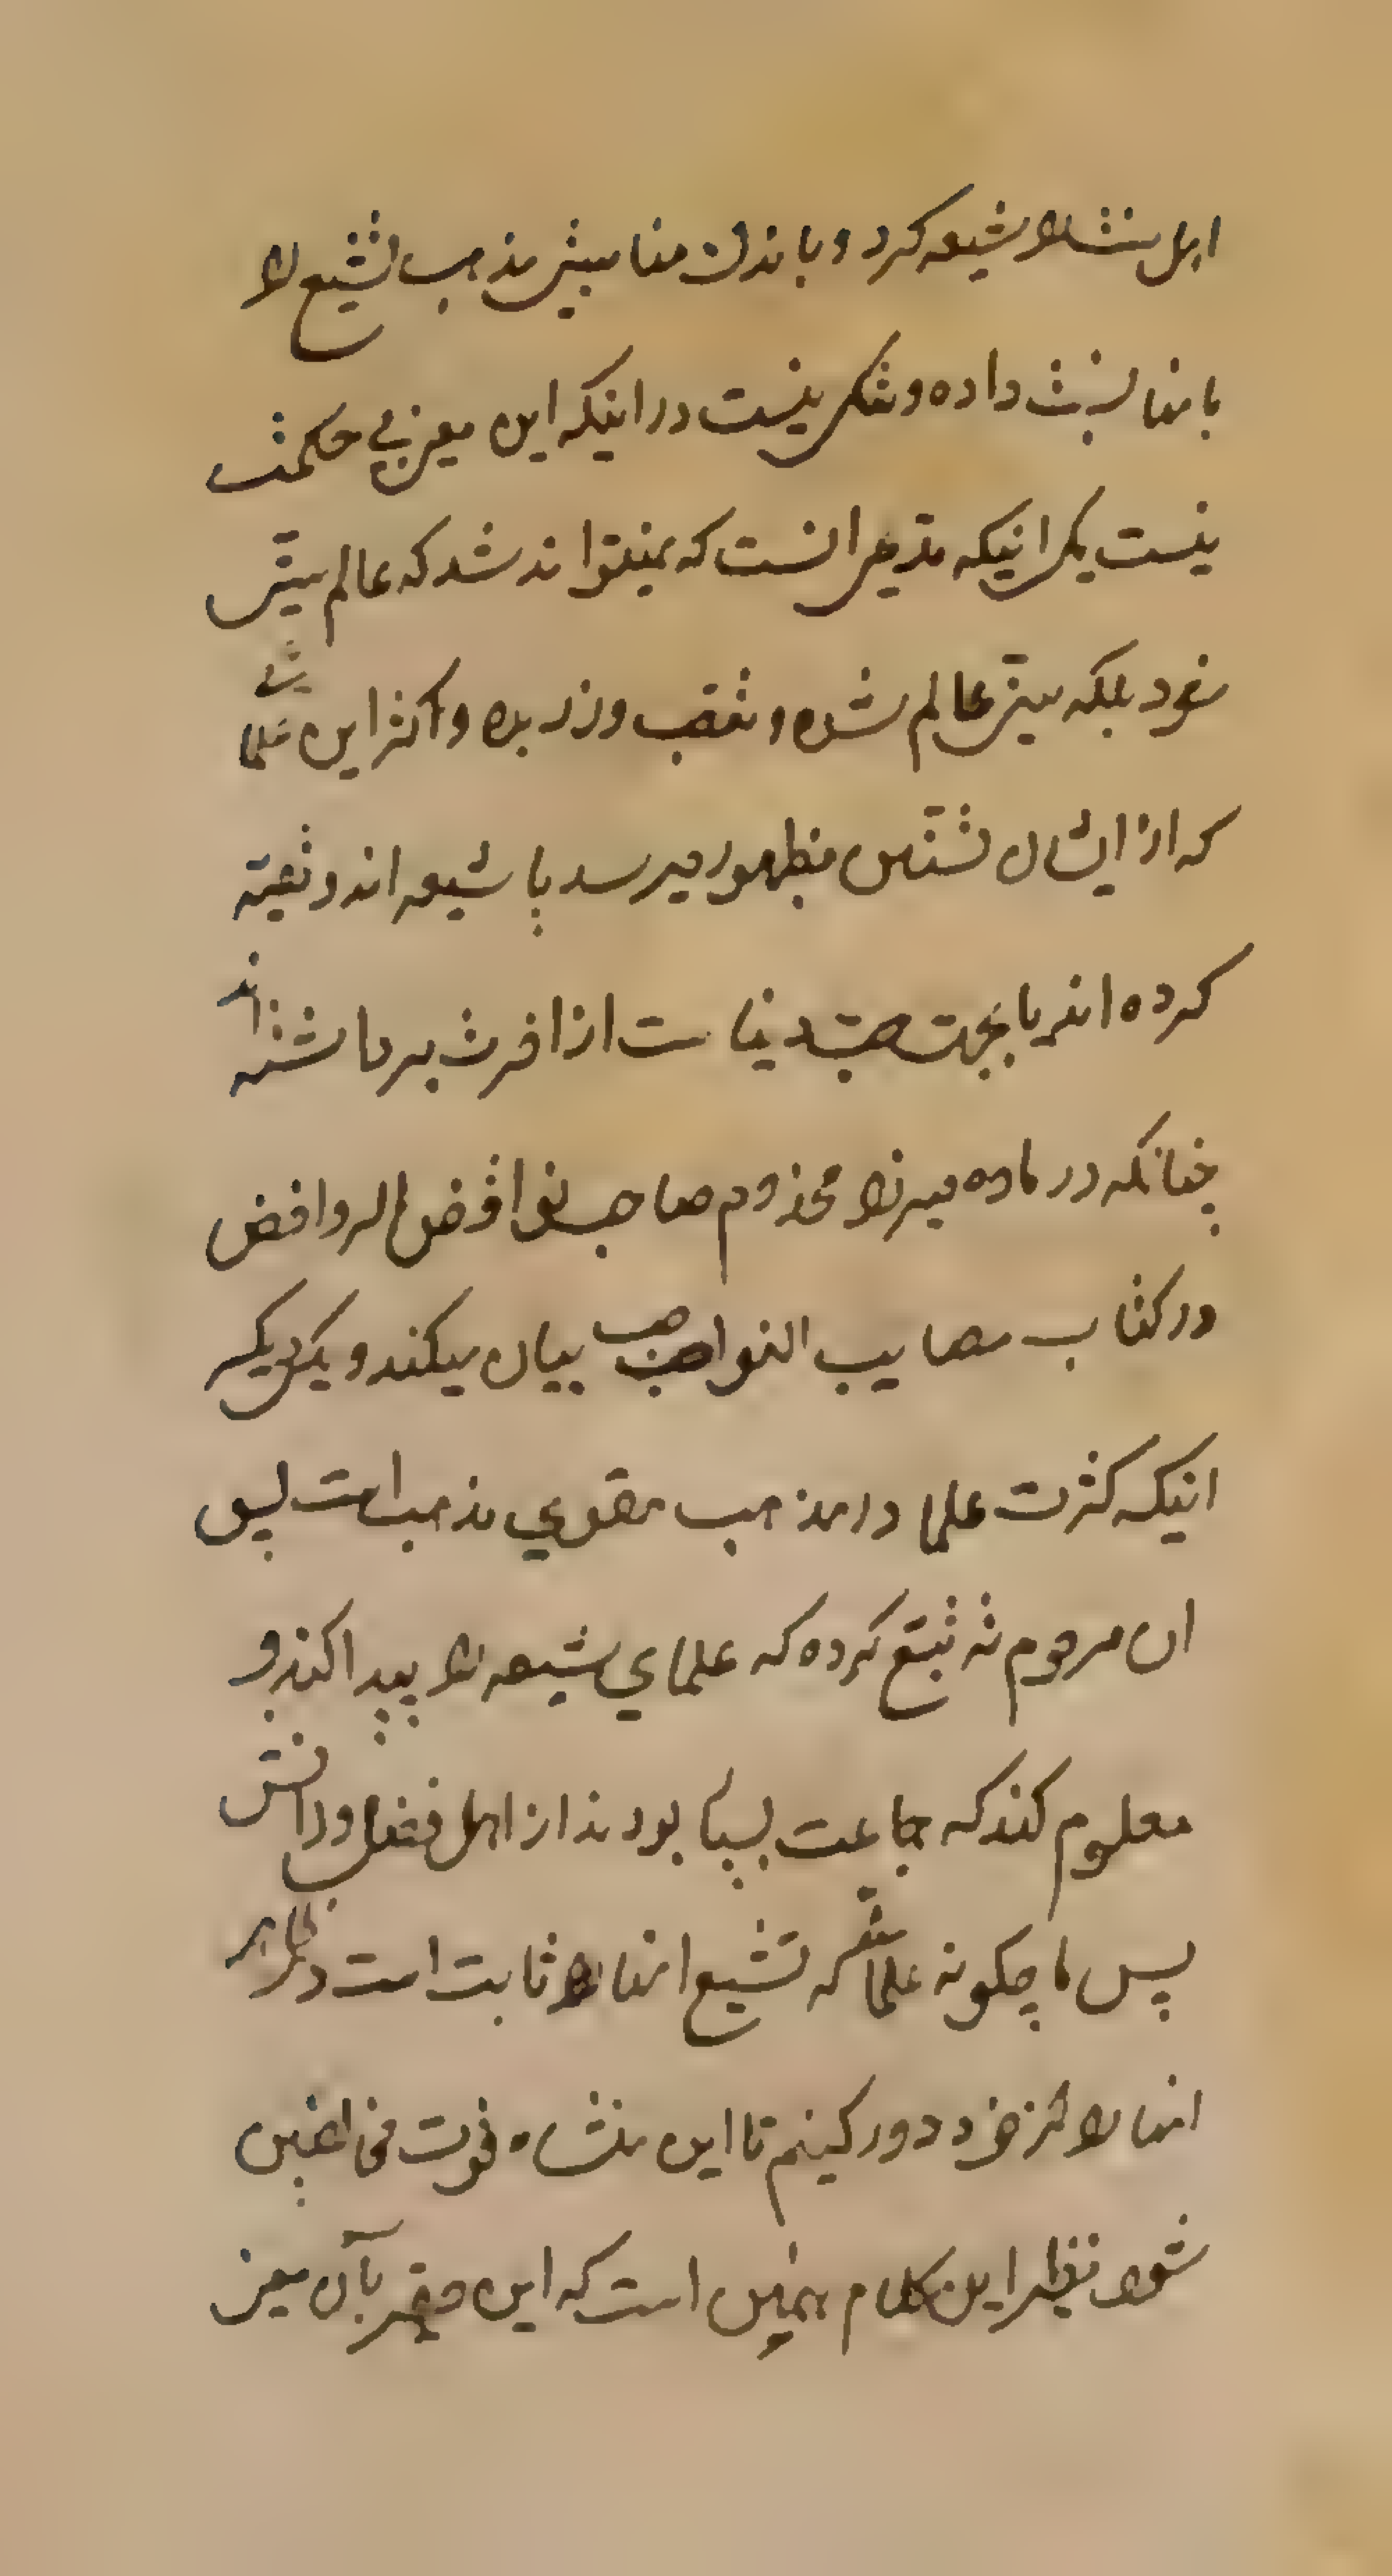 اهل سنت را شیعه کرد و باندک مناسبتی مذهب تشیع را
بانها نسبت داده و شکی نیست در اینکه این معنی بی حکمت
نیست یکی اینکه مذهبی انست که نمیتواند شد که عالم سنی
شود بلکه سنی عالم شده و تعصب ورزیده و اکثر این علما
که از ایشان تسنن بظهور میرسد یا شیعه اند و تقیه
کرده اند یا بجهت حب دنیا دست از اخرت برداشته اند
چنانکه در ماده میرزا مخدوم صاحب نواقض الروافض
در کتاب مصایب النواصب بیان میکند و یکی دیگر
اینکه کثرت علما در مذهب مقوی مذهب است پس
ان مرحوم نه تتبع کرده که علمای شیعه را پیدا کند و
معلوم کند که جماعت بسیار بودند از اهل فضل و دانش
پس ما چکونه علمائی که تشیع انها را ثابت است و ظاهر
انها را از خود دور کنیم تا این منشاء قوت مخالفین
شود نظیر این کلام همین است که این حقیر بآن معنی